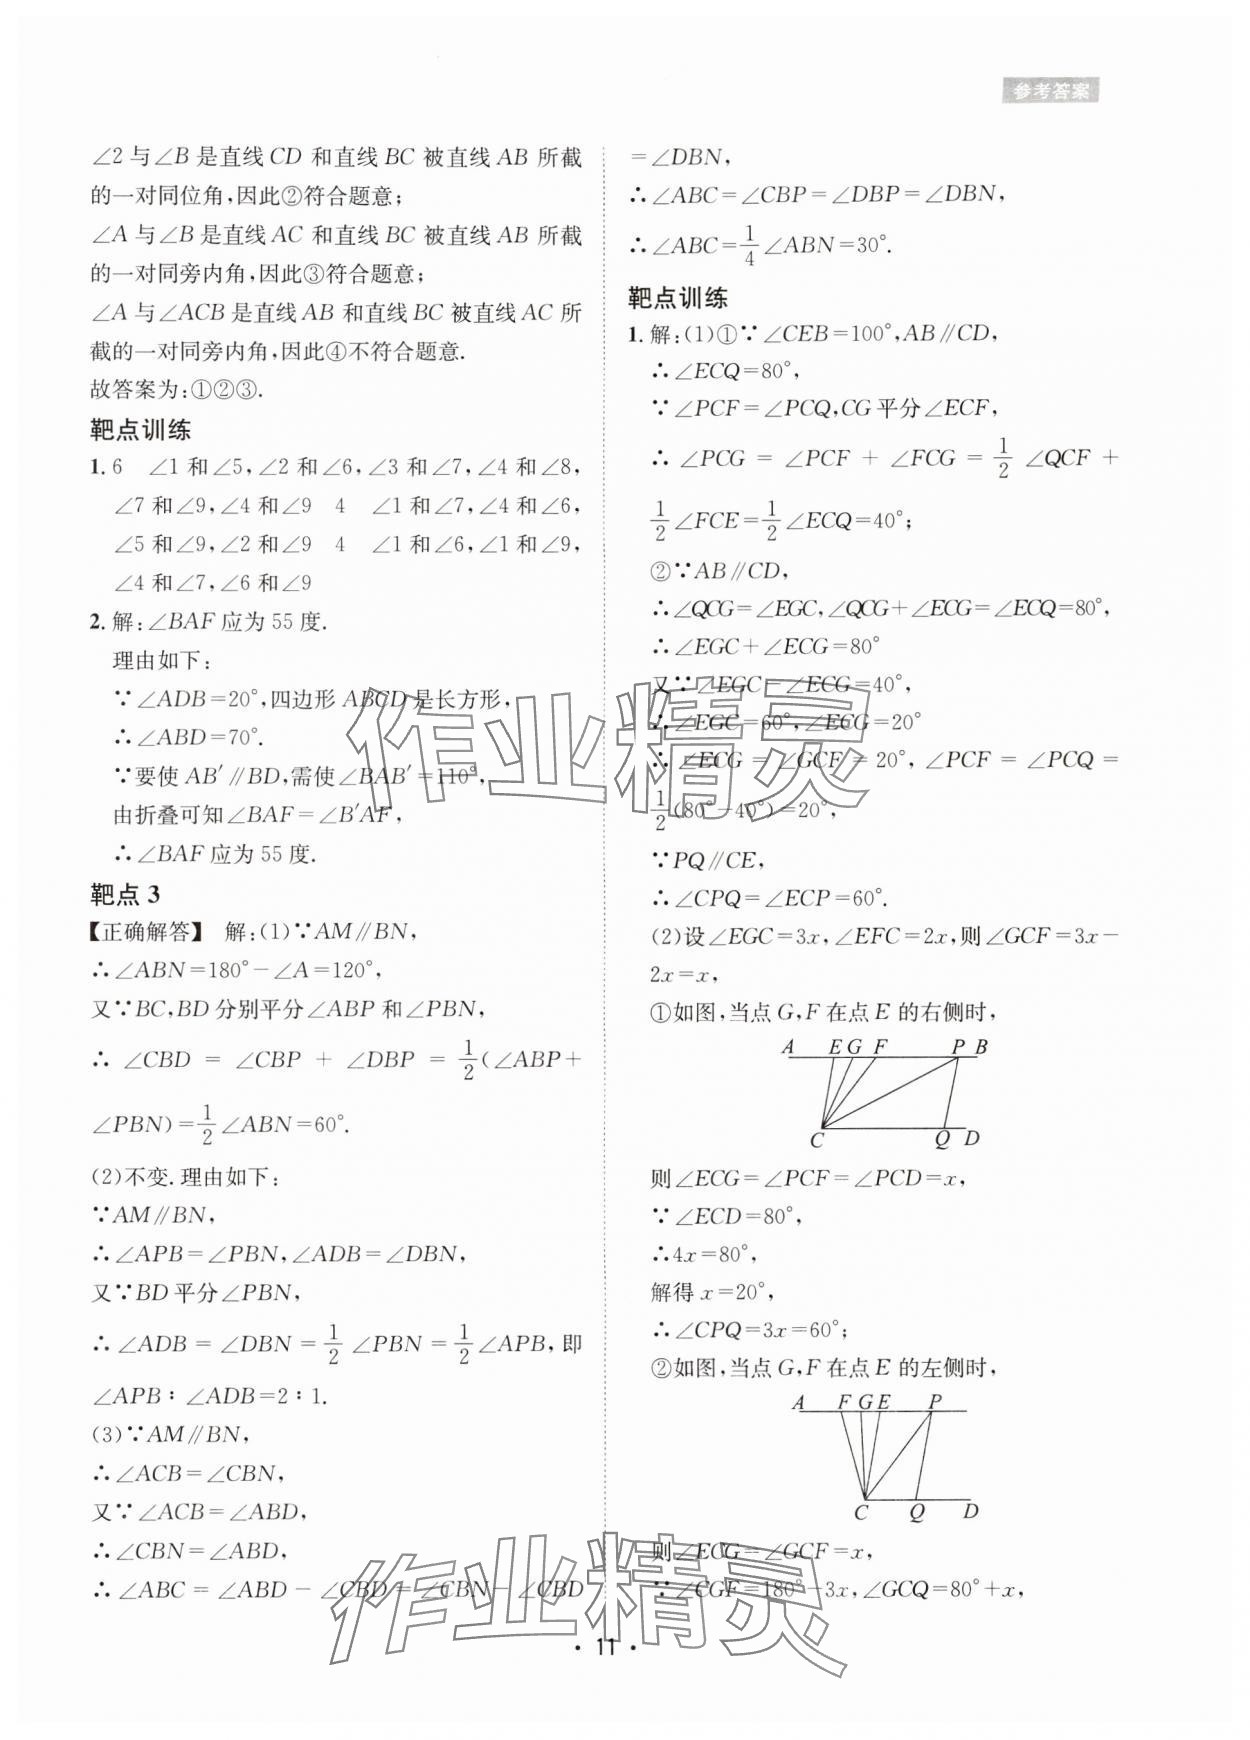 参考答案
∠2与∠B是直线CD和直线BC被直线AB所截
的一对同位角,因此②符合题意;
∠A与∠B是直线AC和直线BC被直线AB所截
的一对同旁内角,因此③符合题意;
∠A与∠ACB是直线AB和直线BC被直线AC所
截的一对同旁内角,因此④不符合题意.
故答案为:①②③.
靶点训练
1. 6　∠1和∠5,∠2和∠6,∠3和∠7,∠4和∠8,
∠7和∠9,∠4和∠9　4　∠1和∠7,∠4和∠6,
∠5和∠9,∠2和∠9　4　∠1和∠6,∠1和∠9,
∠4和∠7,∠6和∠9
2. 解:∠BAF应为55度.
理由如下:
∵∠ADB=20°,四边形ABCD是长方形,
∴∠ABD=70°.
∵要使AB′∥BD,需使∠BAB′=110°,
由折叠可知∠BAF=∠B′AF,
∴∠BAF应为55度.
靶点3
【正确解答】 解:(1)∵AM∥BN,
∴∠ABN=180°-∠A=120°,
又∵BC,BD分别平分∠ABP和∠PBN,
∴∠CBD=∠CBP+∠DBP=1/2(∠ABP+
∠PBN)=1/2∠ABN=60°.
(2)不变.理由如下:
∵AM∥BN,
∴∠APB=∠PBN,∠ADB=∠DBN,
又∵BD平分∠PBN,
∴∠ADB=∠DBN=1/2∠PBN=1/2∠APB,即
∠APB:∠ADB=2:1.
(3)∵AM∥BN,
∴∠ACB=∠CBN,
又∵∠ACB=∠ABD,
∴∠CBN=∠ABD,
∴∠ABC=∠ABD-∠CBD=∠CBN-∠CBD
=∠DBN,
∴∠ABC=∠CBP=∠DBP=∠DBN,
∴∠ABC=1/4∠ABN=30°.
靶点训练
1. 解:(1)①∵∠CEB=100°,AB∥CD,
∴∠ECQ=80°,
∵∠PCF=∠PCQ,CG平分∠ECF,
∴∠PCG=∠PCF+∠FCG=1/2∠QCF+
1/2∠FCE=1/2∠ECQ=40°;
②∵AB∥CD,
∴∠QCG=∠EGC,∠QCG+∠ECG=∠ECQ=80°,
∴∠EGC+∠ECG=80°
又∵∠EGC-∠ECG=40°,
∴∠EGC=60°,∠ECG=20°
∴∠ECG=∠GCF=20°,∠PCF=∠PCQ=
1/2(80°-40°)=20°,
∵PQ∥CE,
∴∠CPQ=∠ECP=60°.
(2)设∠EGC=3x,∠EFC=2x,则∠GCF=3x-
2x=x,
①如图,当点G,F在点E的右侧时,
A E G F P B
C Q D
则∠ECG=∠PCF=∠PCD=x,
∵∠ECD=80°,
∴4x=80°,
解得x=20°,
∴∠CPQ=3x=60°;
②如图,当点G,F在点E的左侧时,
A F G E P
C Q D
则∠ECG=∠GCF=x,
∵∠CGF=180°-3x,∠GCQ=80°+x,
作业精灵
作业精灵
· 11 ·